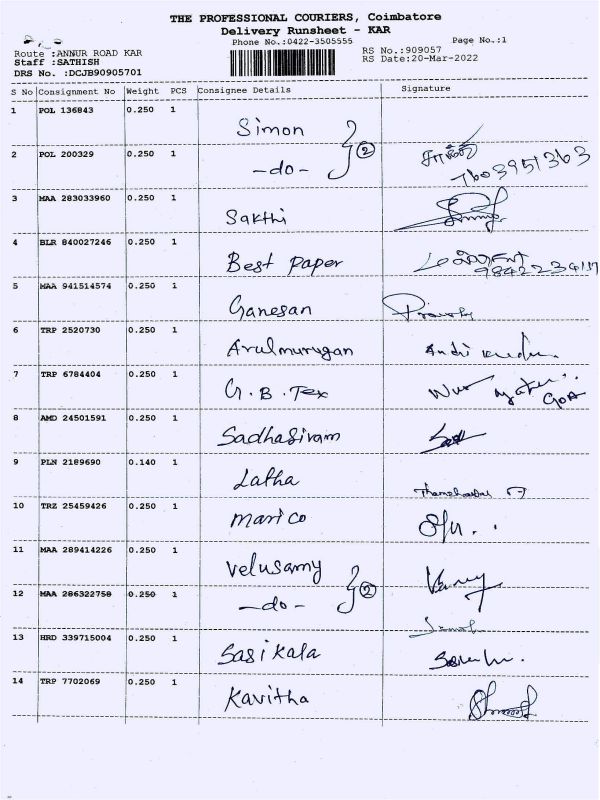 THE PROFESSIONAL COURIERS, Coimbatore
Delivery Runsheet - KAR
Phone No.:0422-3505555
Page No.:1
Route :ANNUR ROAD KAR
Staff :SATHISH
DRS No. :DCJB90905701
RS No.:909057
RS Date:20-Mar-2022
S No Consignment No Weight PCS Consignee Details Signature
1 POL 136843 0.250 1 Simon
2 POL 200329 0.250 1 -do- 2 7603951363
3 MAA 283033960 0.250 1 Sakthi
4 BLR 840027246 0.250 1 Best paper
5 MAA 941514574 0.250 1 Ganesan
6 TRP 2520730 0.250 1 Arulmurugan
7 TRP 6784404 0.250 1 G.B. Tex
8 AMD 24501591 0.250 1 Sadhasivam
9 PLN 2189690 0.140 1 Latha
10 TRZ 25459426 0.250 1 Marico
11 MAA 289414226 0.250 1 Velusamy
12 MAA 286322758 0.250 1 -do- 2
13 HRD 339715004 0.250 1 Sasikala
14 TRP 7702069 0.250 1 Kavitha